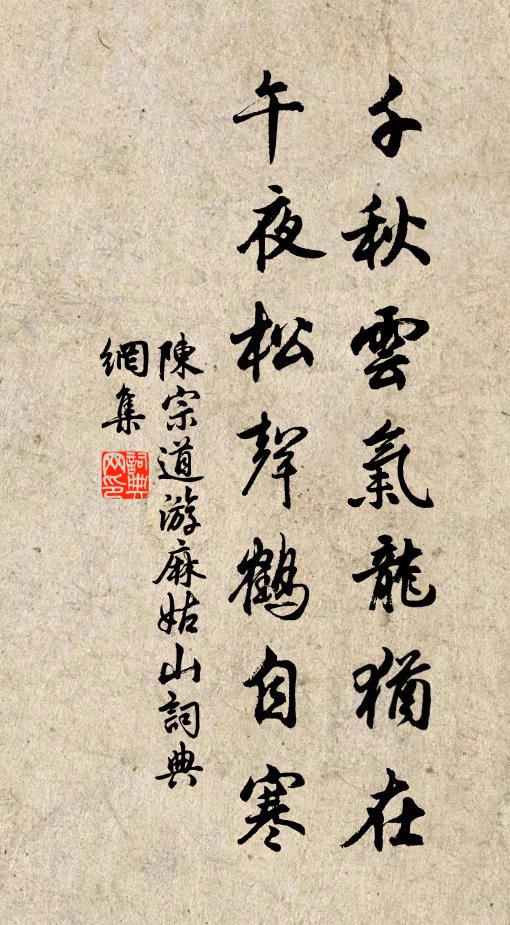 千秋雲氣龍猶在
午夜松聲鶴自寒
陳宗道游麻姑山詞典
網集
詞典
网印